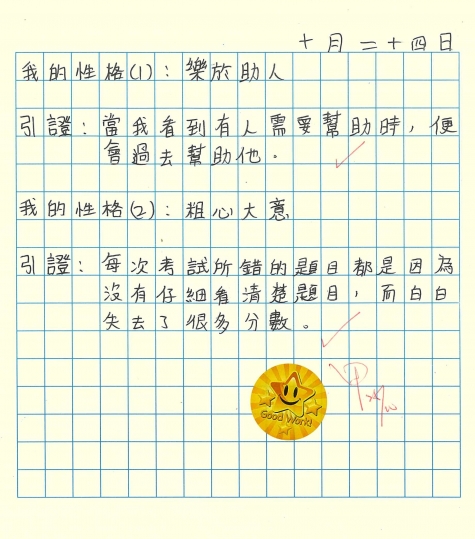 十月二十四日
我的性格(1)：樂於助人
引證：當我看到有人需要幫助時，便
會過去幫助他。
我的性格(2)：粗心大意
引證：每次考試所錯的題目都是因為
沒有仔細看清楚題目，而白白
失去了很多分數。
Good World
甲